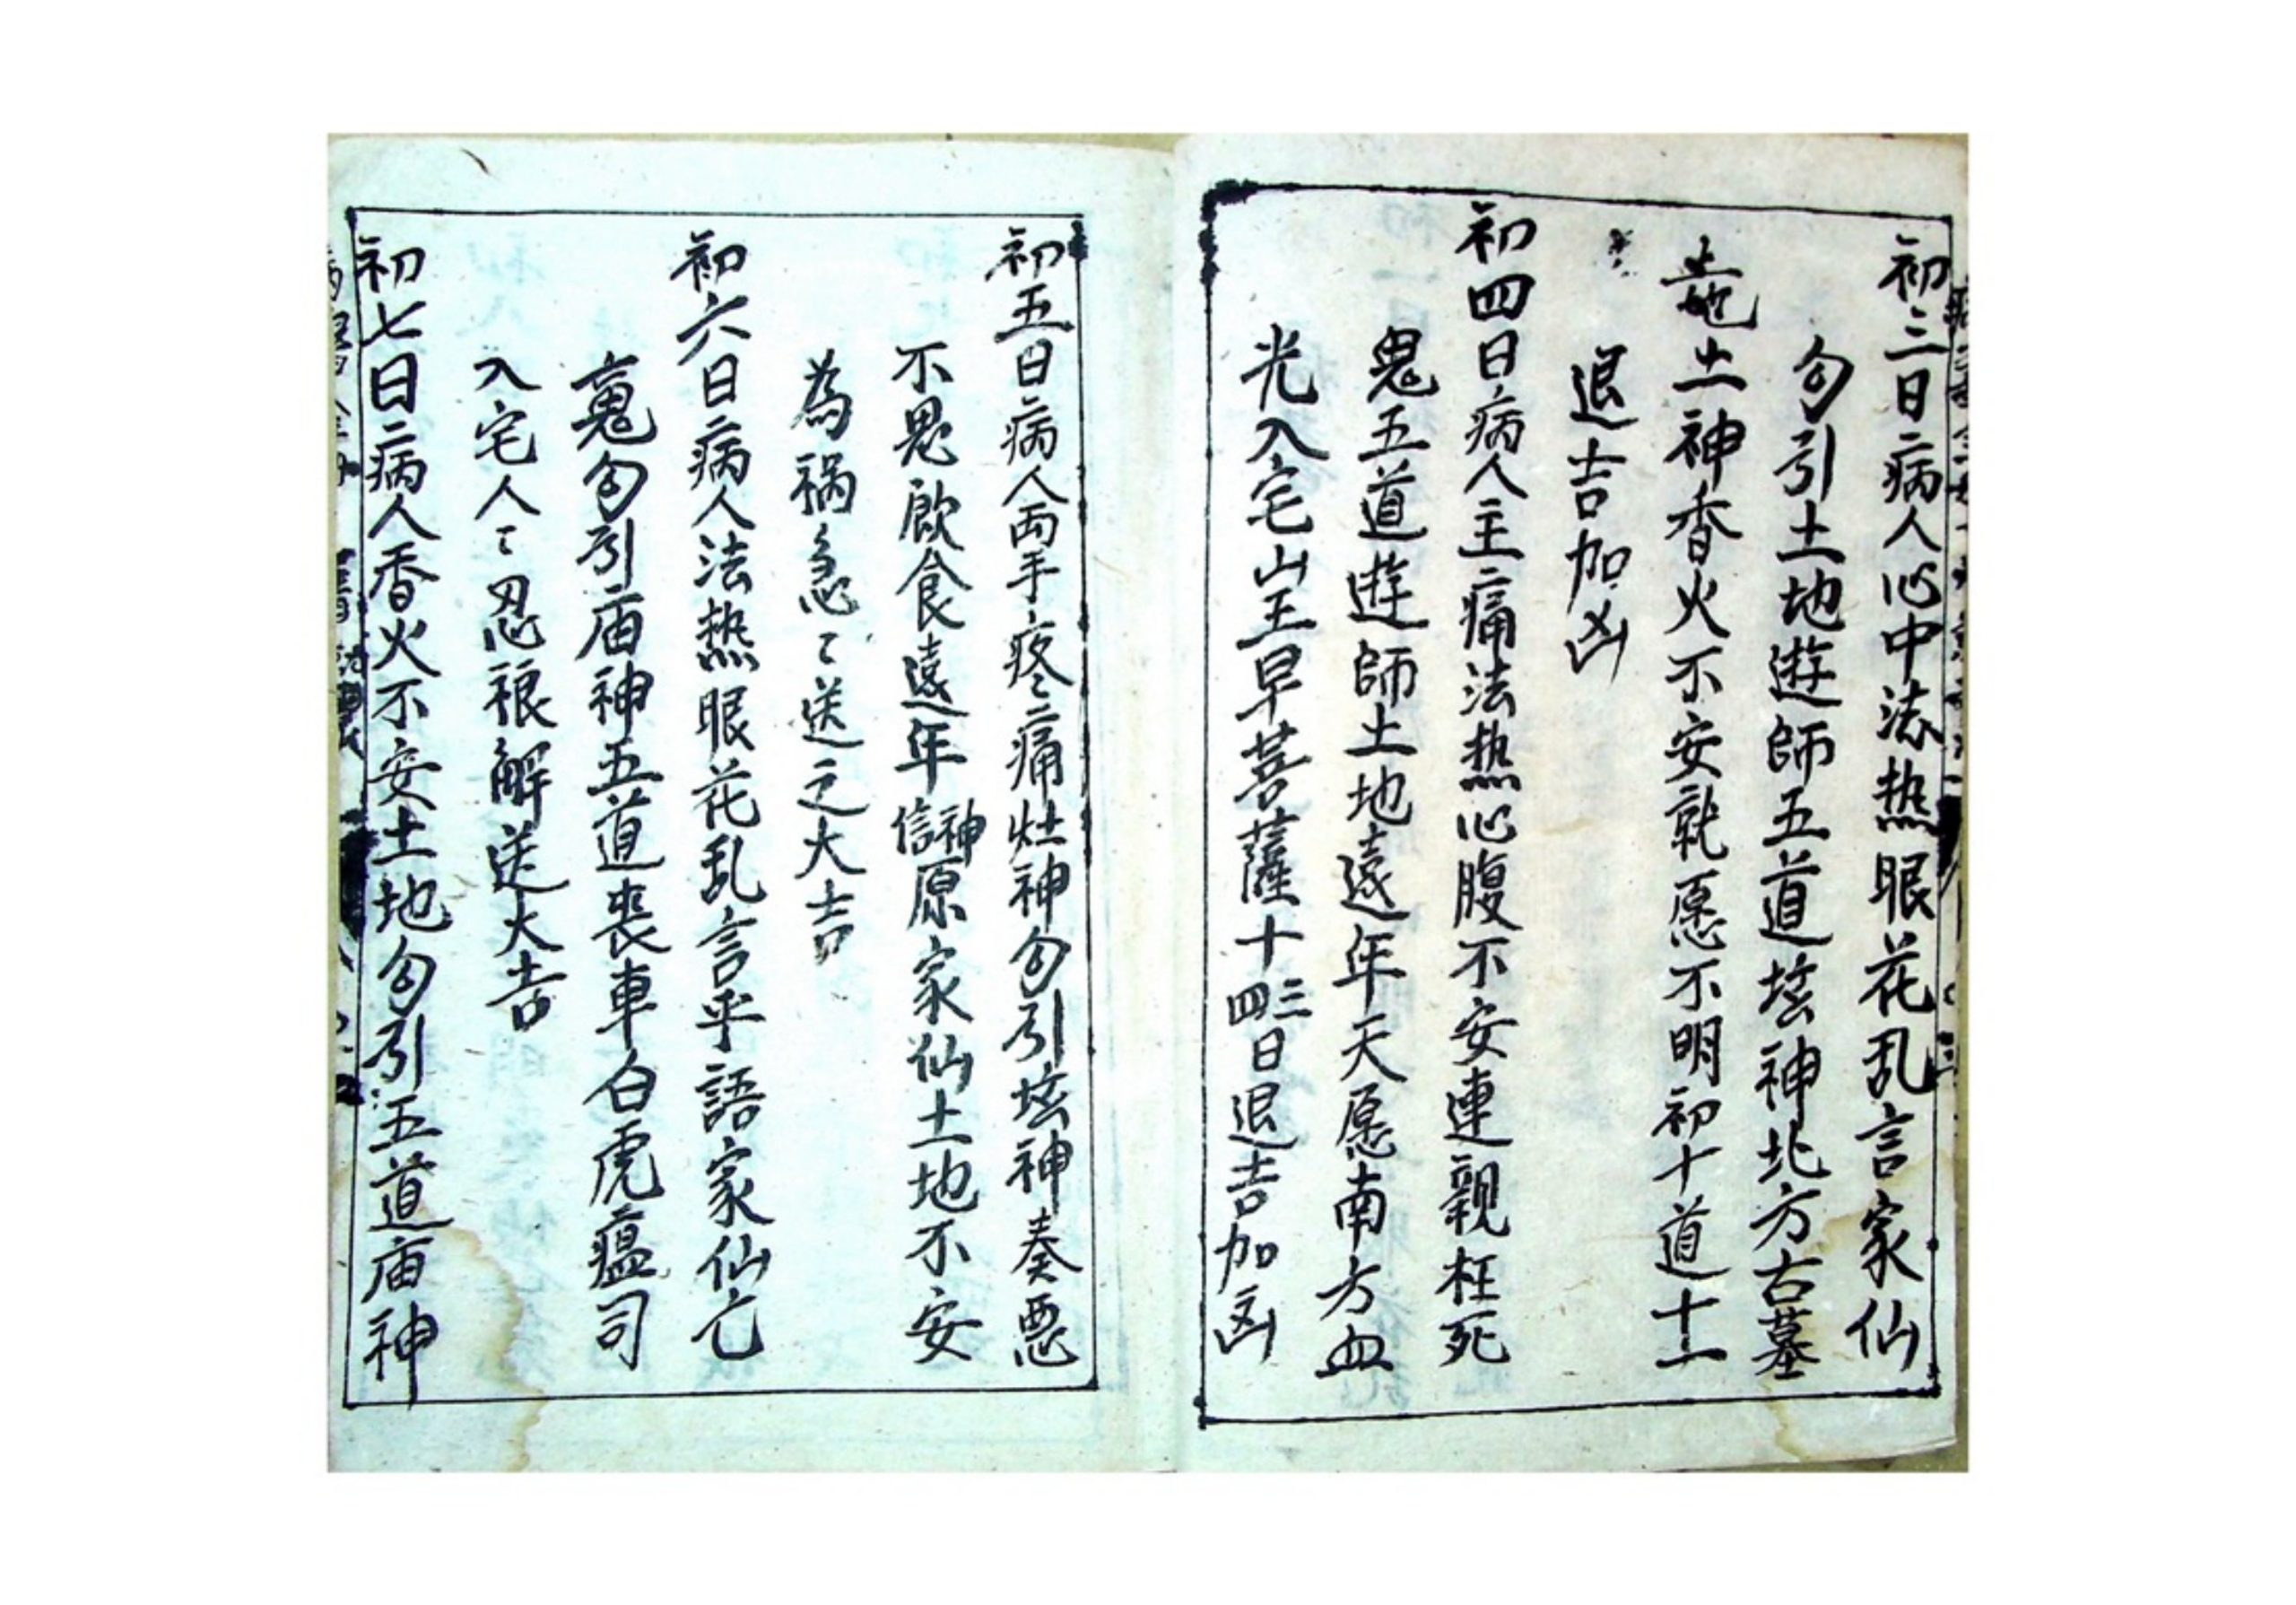 初三日病人心中法热眼花乱言家仙
勾引土地遊師五道坛神北方古墓
土神香火不安就愿不明初十道十一
退吉加凶
初四日病人主痛法热心腹不安連親枉死
鬼五道遊師土地遠年天愿南方血
光入宅山王早菩薩十三四日退吉加凶
初五日病人両手疼痛灶神勾引坛神奏悪
不思飲食遠年神信原家仙土地不安
為祸急〻送之大吉
初六日病人法热眼花乱言乎語家仙亡
鬼勾引庙神五道丧車白虎瘟司
入宅人〻忍裉解送大吉
初七日病人香火不安土地勾引五道庙神